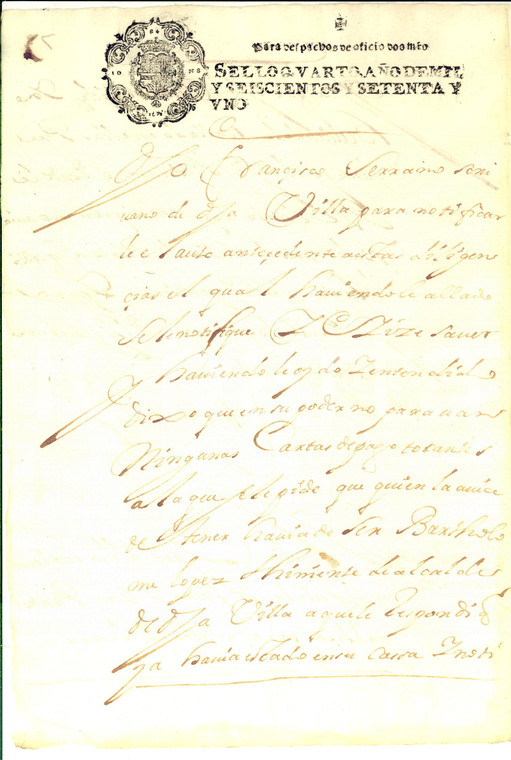 Para despachos de oficio dos mrs
SELLO QVARTO, AÑO DE MIL
Y SEISCIENTOS Y SETENTA Y
VNO
Francisco Serrano scri
uano de Villa para notificar
le el auto antecedente
çias el qual hauiendole allado
se le notifique hize sauer
Y hauiendolo oydo y entendido
dixo que en su poder no parauan
Ningunas Cartas de pago tocantes
a lo que se le pide que quien la auia
de tener hauia de ser Bartholo
me lopez theniente de alcalde
de Villa a que le Respondi q
ya hauia estado en su cassa Y noti